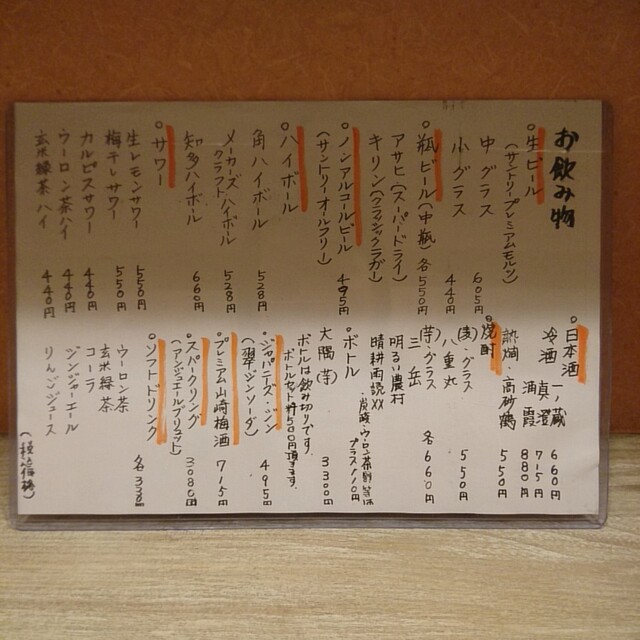 お飲み物
○生ビール
(サントリープレミアムモルツ)
中グラス 605円
小グラス 440円
○瓶ビール(中瓶)各550円
アサヒ(スーパードライ)
キリン(クラシックラガー)
○ノンアルコールビール 495円
(サントリーオールフリー)
○ハイボール
角ハイボール 528円
メーカーズクラフトハイボール 528円
知多ハイボール 660円
○サワー
生レモンサワー 550円
梅干しサワー 550円
カルピスサワー 440円
ウーロン茶ハイ 440円
玄米緑茶ハイ 440円
○日本酒
冷酒 一ノ蔵 660円
真澄 715円
浦霞 880円
熱燗・高砂鶴 550円
○焼酎
(麦)・グラス
八重丸 550円
(芋)・グラス 各660円
三岳
明るい農村
晴耕雨読XX
○ボトル
・炭酸・ウーロン茶割
プラス110円
大隅(芋) 3300円
ボトルは飲み切りです。
ボトルセット料500円頂きます。
○ジャパニーズ・ジン
(翠ジンソーダ) 495円
○プレミアム山崎梅酒 715円
○スパークリング 3080円
○ソフトドリンク 各330円
ウーロン茶
玄米緑茶
コーラ
ジンジャーエール
りんごジュース